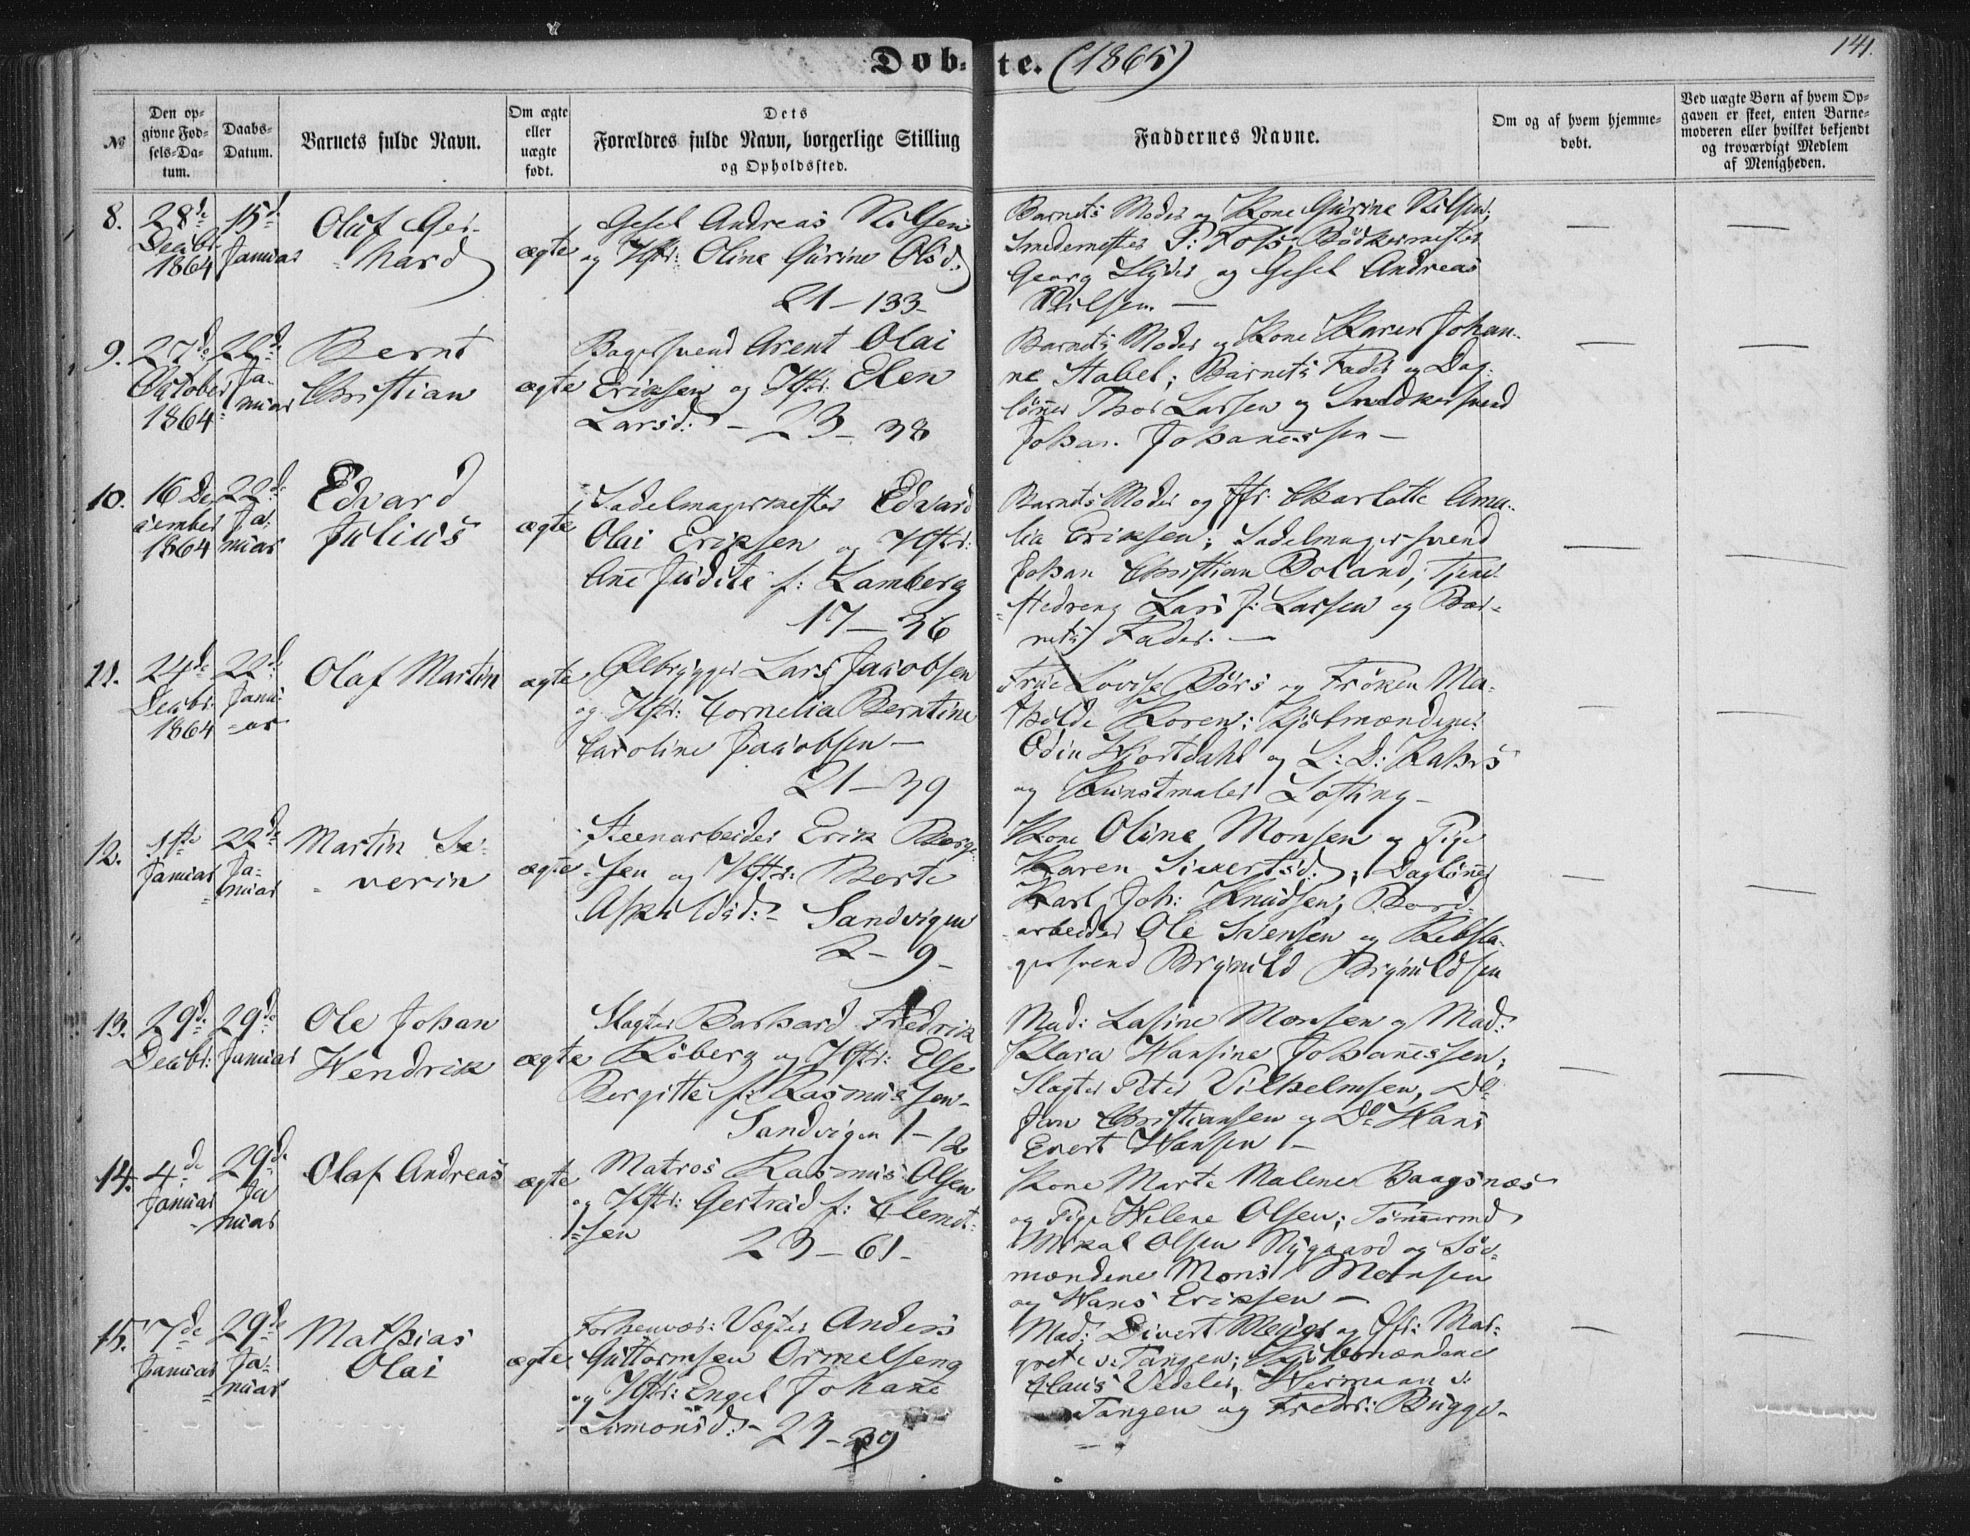 Døb- te. (1865)
141.
№
Den op-
givne Fød-
sels-Da-
tum.
Daabs-
Datum.
Barnets fulde Navn.
Om ægte
eller
uægte
født.
Dets
Forældres fulde Navn, borgerlige Stilling
og Opholdssted.
Faddernes Navne.
Om og af hvem hjemme-
døbt.
Ved uægte Børn af hvem Op-
gaven er skeet, enten Barne-
moderen eller hvilket bekjendt
og troværdigt Medlem
af Menigheden.
8.
28de
Decbr.
1864
15de
Januar
Oluf Ger-
hard
ægte
Gesel Andreas Nilsen
og Hstr: Oline Gurine Olsd:
21 — 133
Barnets Moder og Kone Gurine Nilsen;
Smedemester P: Foss Bødkermester
Georg og Gesel Andreas
Nilsen. —
— —
9.
27de
October
1864
22de
Ja-
nuar
Bernt
Christian
ægte
Bagersvend Arent Olai
Eriksen og Hstr: Elen
Larsd: — 23 — 38
Barnets Moder og Kone Karen Johan-
ne Stabel; Barnets Fader og Dag-
lønner Thor Larsen og Snedkersvend
Johan Johannessen —
— —
10.
16 De
cember
1864
22de
Ja-
nuar
Edvard
Julius
ægte
Sadelmagermester Edvard
Olai Eriksen og Hstr:
Ane Judite f: Lamberg
17 — 36
Barnets Moder og Jfr: Charlotte Ama-
lia Eriksen; Sadelmagersvend
Johan Christian Boland, Tjene-
stedreng Lars J: Larsen og Bar-
nets Fader. —
— —
11.
24de
Decbr:
1864
22de
Janu-
ar
Olaf Martin
ægte
Ølbrygger Lars Jacobsen
og Hstr: Cornelia Berntine
Caroline Jacobsen —
21 — 39
Frue Lovise Børs og Frøken Ma-
thilde Koren; Kjøbmændene
Odin Hjortdahl og L: D: Kahrs
og Kunstmaler Losting —
— —
12.
1ste
Januar
22de
Ja-
nuar
Martin Se-
verin
ægte
Steenarbeider Erik Børge-
sen og Hstr: Berte
Askildsd: — Sandvigen
2 — 9 —
Kone Oline Monsen og Pige
Karen Sivertsd:; Daglønner
Karl Joh: Knudsen; Bord-
arbeider Ole Svensen og Rebsla-
gersvend Brynild Brynildsen
— —
13.
29de
Decbr:
29de
Januar
Ole Johan
Hendrik
ægte
Slagter Barhard Fredrik
Riberg og Hstr: Else
Bergitte f: Rasmussen —
Sandvigen 1 — 12
Mad: Lasine Monsen og Mad:
Klara Hansine Johannessen;
Slagter Peter Vilhelmsen, Do
Jan Christiansen og Do Hans
Evert Hansen —
— —
14.
4de
Januar
29de
Ja
nuar
Olaf Andreas
ægte
Matros Rasmus Olsen
og Hstr: Gertrud f: Clemet-
sen
23 — 61 —
Kone Marte Malene Baagsnæs
og Pige Helene Olsen; Tømmermd
Mikal Olsen Nygaard og Sø-
mændene Mons Monsen
og Hans Eriksen —
15.
7de
Januar
29de
Ja-
nuar
Mathias
Olai
ægte
Forhenvær: Vægter Anders
Guttormsen Ormelseng
og Hstr: Engel Johane
Simonsd: — 23 — 39
Mad: Divert Meyer og Jfr: Mar-
grete v: Tangen; Kjøbmændene
Claus Vedeler, Herman v:
Tangen og Fredr: Bugge —
— —